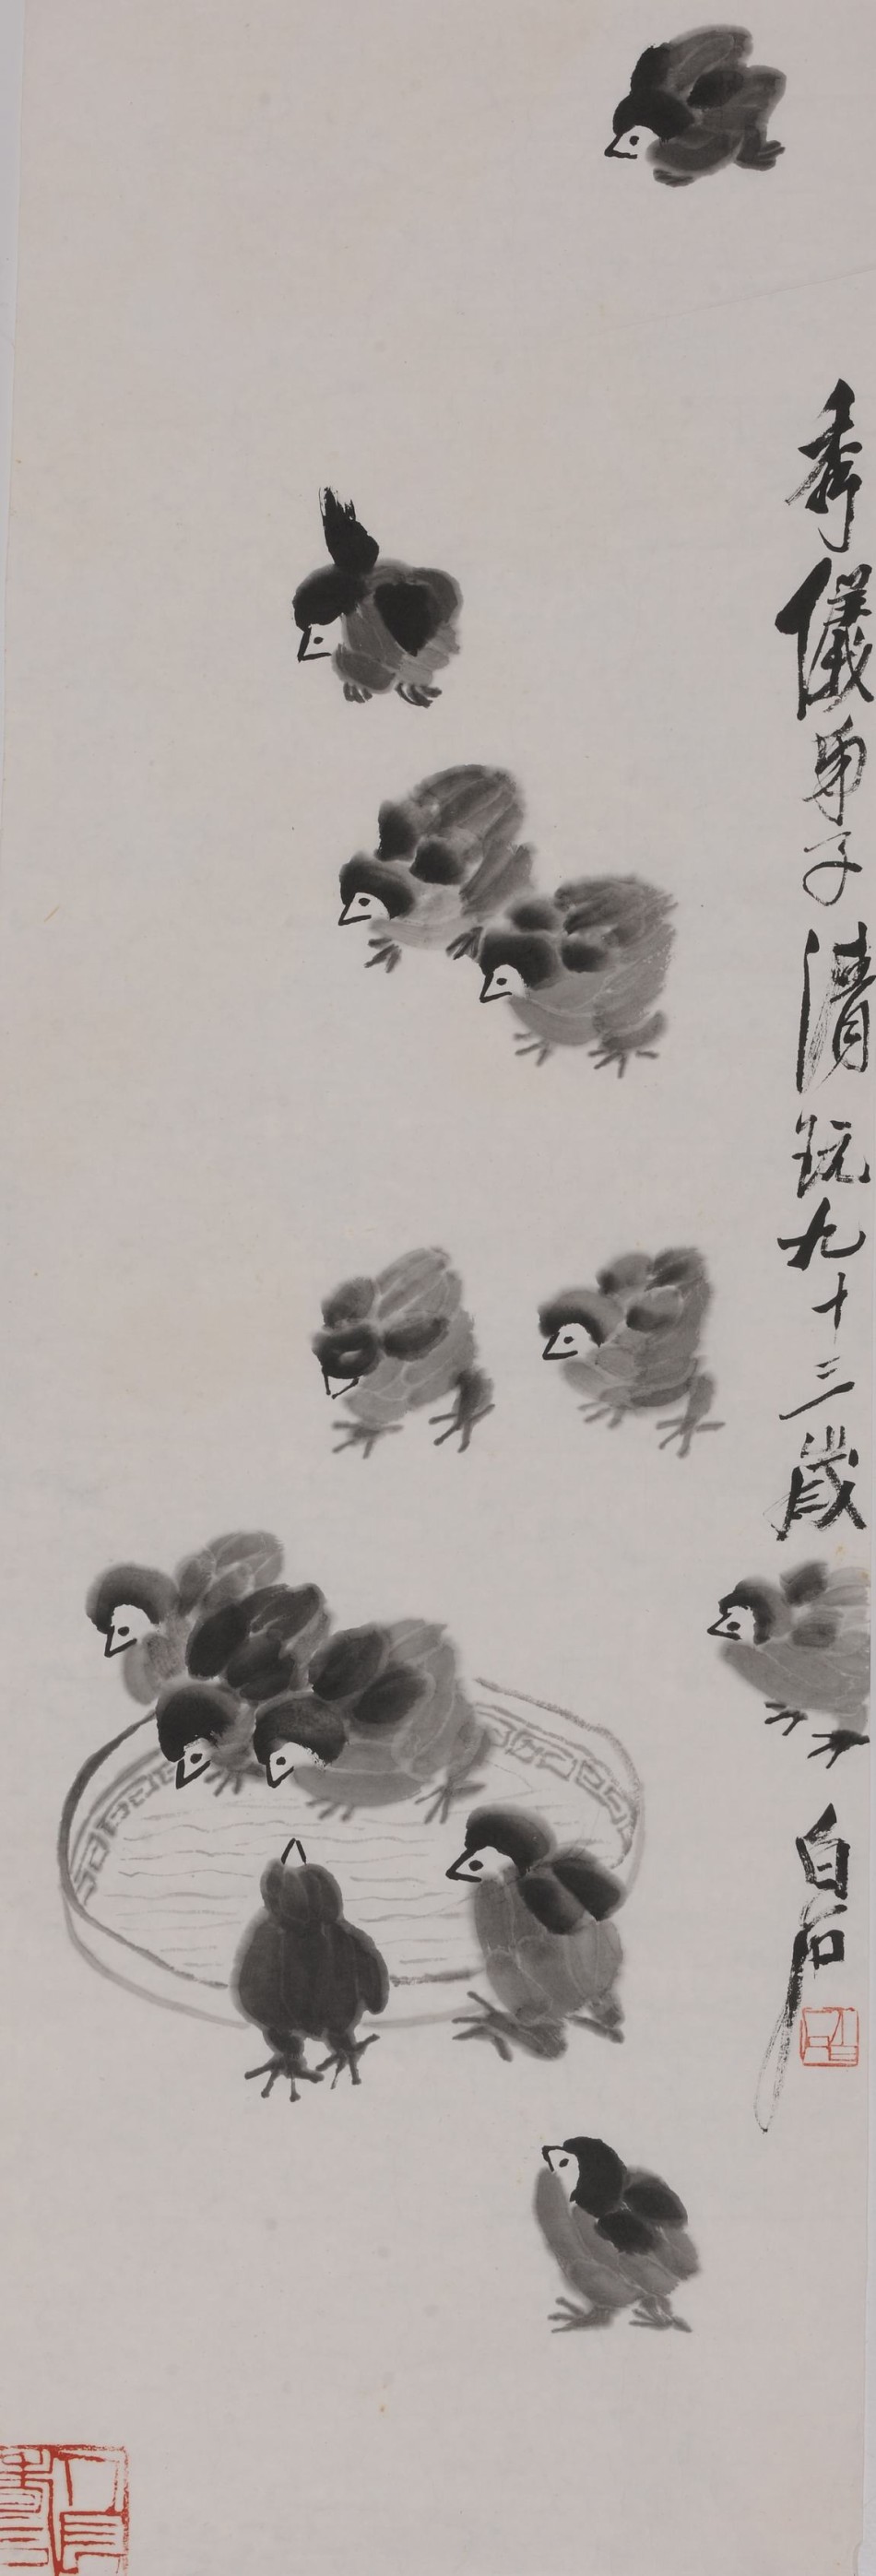 秀儀弟子清玩九十三歲
白石